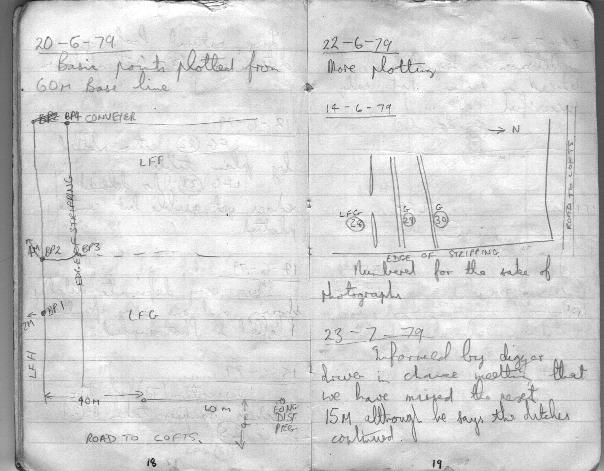 20-6-79
Basic points plotted from
60M Base line
BP4 CONVEYER
LFF
EDGE OF STRIPPING
BP2
BP3
BP1
2M
LFG
LFH
40M
60M
LONG
DIST
PEG
ROAD TO LOFTS.
18
22-6-79
More plotting
14-6-79
→ N
ROAD TO LOFTS
LFG
28
G
29
G
30
EDGE OF STRIPPING
Numbered for the sake of
photographs
23-7-79
Informed by digger
driver in chance meeting that
we have missed the next
15M although he says the ditches
continued.
19